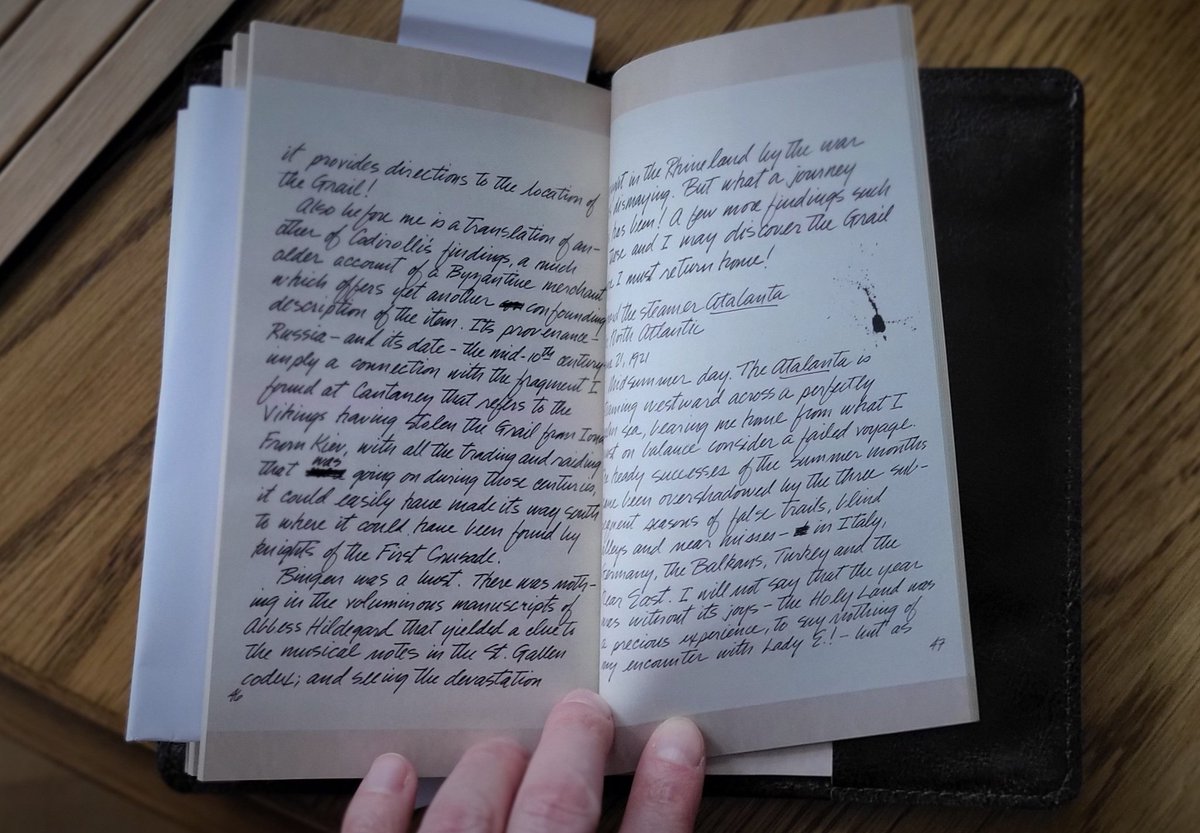 it provides directions to the location of
the Grail!
Also before me is a translation of an-
other of Codirolli's findings, a much
older account of a Byzantine merchant
which offers yet another confounding
description of the item. Its provenance –
Russia – and its date – the mid-10th century
imply a connection with the fragment I
found at Cantaney that refers to the
Vikings having stolen the Grail from Iona
From Kiev, with all the trading and raiding
that was going on during those centuries,
it could easily have made its way south
to where it could have been found by
knights of the First Crusade.
Bingen was a bust. There was noth-
ing in the voluminous manuscripts of
Abbess Hildegard that yielded a clue to
the musical notes in the St. Gallen
codex; and seeing the devastation
46
in the Rhineland by the war
dismaying. But what a journey
has been! A few more findings such
and I may discover the Grail
I must return home!
the steamer Atalanta
North Atlantic
21, 1921
Midsummer day. The Atalanta is
westward across a perfectly
sea, bearing me home from what I
on balance consider a failed voyage.
heady successes of the summer months
been overshadowed by the three sub-
seasons of false trails, blind
and near misses – in Italy,
Germany, the Balkans, Turkey and the
Near East. I will not say that the year
was without its joys – the Holy Land was
a precious experience, to say nothing of
my encounter with Lady E! – but as
47